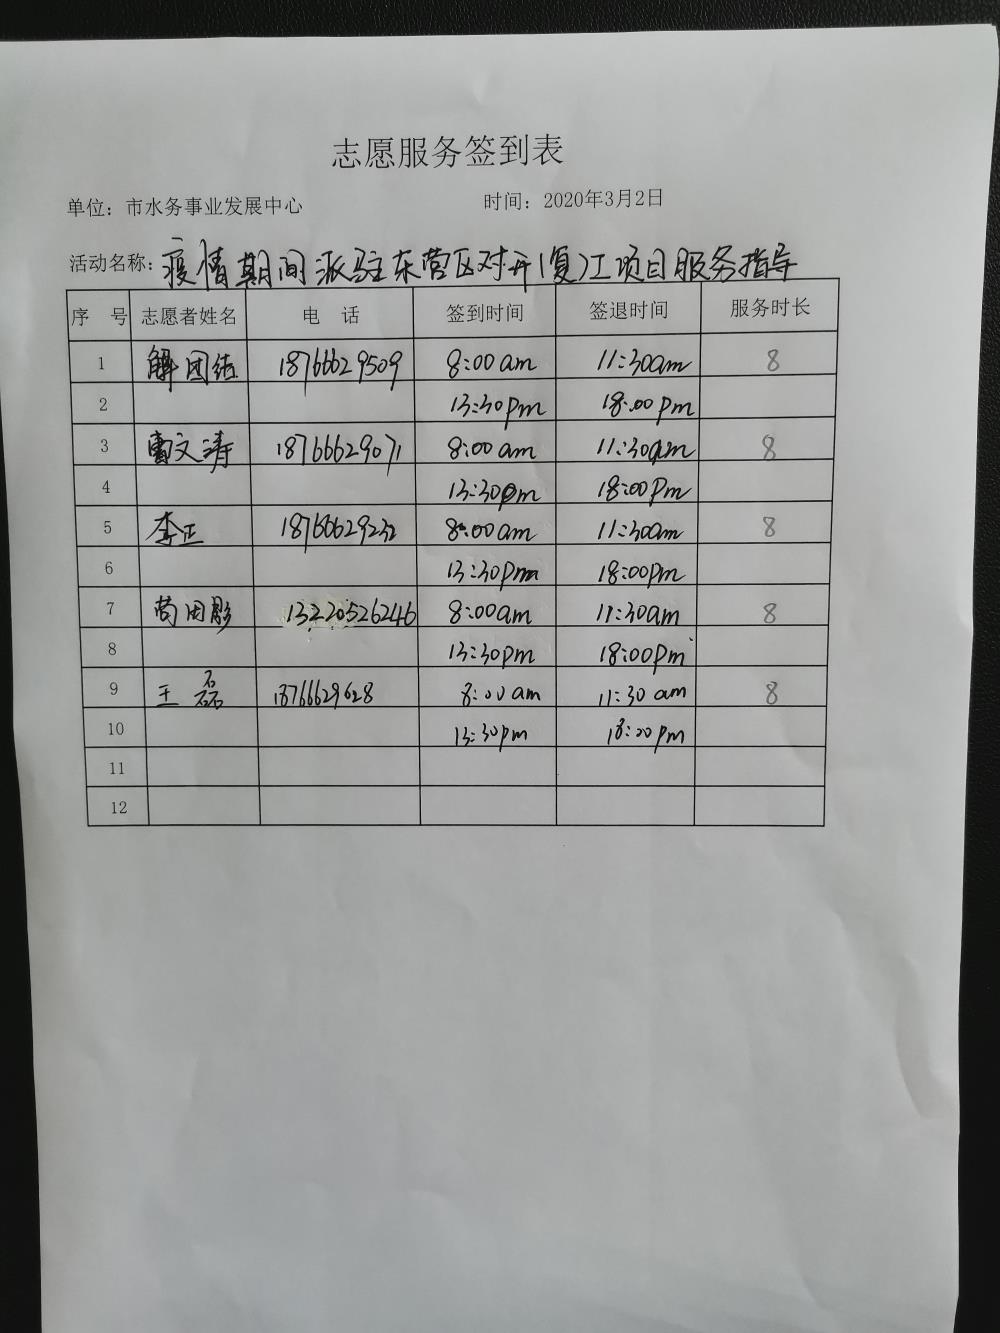 志愿服务签到表
单位：市水务事业发展中心 时间：2020年3月2日
活动名称：疫情期间派驻东营区对开（复）工项目服务指导
序 号 志愿者姓名 电 话 签到时间 签退时间 服务时长
1 解团结 18766629509 8:00am 11:30am 8
2 13:30pm 18:00pm
3 曹文涛 18766629071 8:00am 11:30am 8
4 13:30pm 18:00pm
5 李正 18766629232 8:00am 11:30am 8
6 13:30pm 18:00pm
7 13220526246 8:00am 11:30am 8
8 13:30pm 18:00pm
9 王磊 18766629628 8:00am 11:30am 8
10 13:30pm 18:00pm
11
12